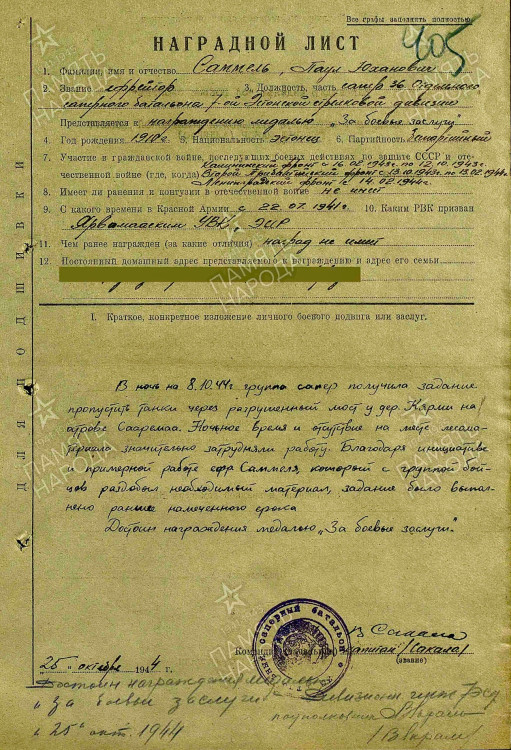 Все графы заполнять полностью
405
НАГРАДНОЙ ЛИСТ
1. Фамилия, имя и отчество Саммель, Паул Юханович
2. Звание ефрейтор 3. Должность, часть сапер 36 Отдельного
саперного батальона 7-ой Эстонской стрелковой дивизии
Представляется к награждению медалью „За боевые заслуги"
4. Год рождения 1910г. 5. Национальность Эстонец 6. Партийность Беспартийный
7. Участие в гражданской войне, последующих боевых действиях по защите СССР и оте-
чественной войне (где, когда) Калининский фронт с 16.02.1943г. по 12.10.1943г.
Второй Прибалтийский фронт с 13.10.1943г. по 13.02.1944г.
Ленинградский фронт с 14.02.1944г.
8. Имеет ли ранения и контузии в отечественной войне не имеет
9. С какого времени в Красной Армии с 22.07.1941г. 10. Каким РВК призван
Ярвамааским УВК, ЭССР
11. Чем ранее награжден (за какие отличия) наград не имеет
12. Постоянный домашний адрес представляемого к награждению и адрес его семьи
ДЛЯ ПОДШИВКИ
I. Краткое, конкретное изложение личного боевого подвига или заслуг.
В ночь на 8.10.44г. группа сапер получила задание
пропустить танки через разрушенный мост у дер. Кярми на
острове Сааремаа. Ночьное время и отсутствие на месте лесома-
териала значительно затрудняли работу. Благодаря инициативе
и примерной работе ефр Саммеля, который с группой бой-
цов раздобыл необходимый материал, задание было выпол-
нено раньше намеченного срока
Достоин награждения медалью „За боевые заслуги".
саперный батальон
Командир (начальник)
капитан /Сакала/
(звание)
„25" октября 1944 г.
Достоин награждения медалью
„за боевые заслуги"
Дивизионный
подполковник
„25" окт. 1944
ПАМЯТЬ НАРОДА